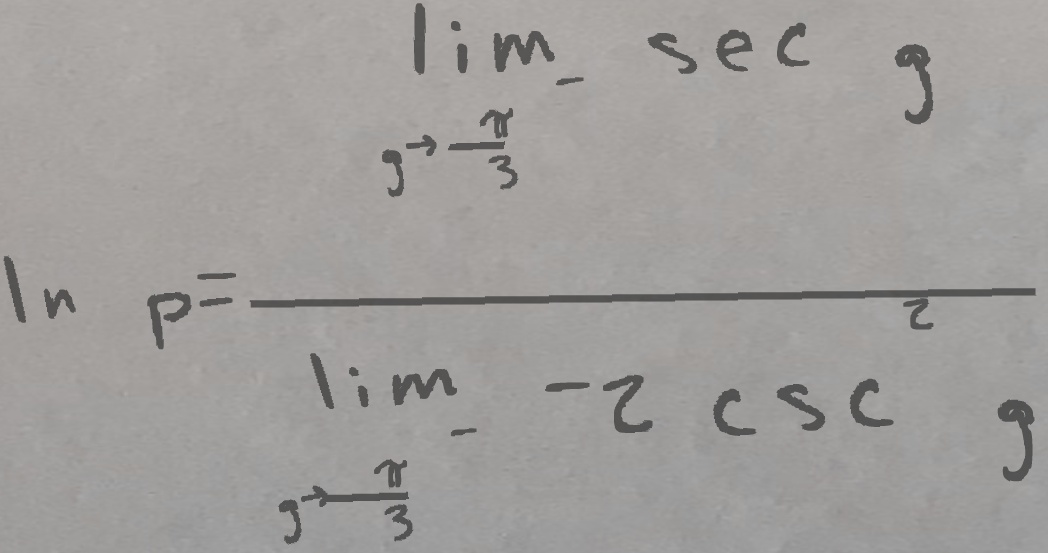 \ln p = \frac{\lim_{g \to \frac{\pi}{3}^{-}} \sec g}{\lim_{g \to \frac{\pi}{3}^{-}} -2 \csc^{2} g}